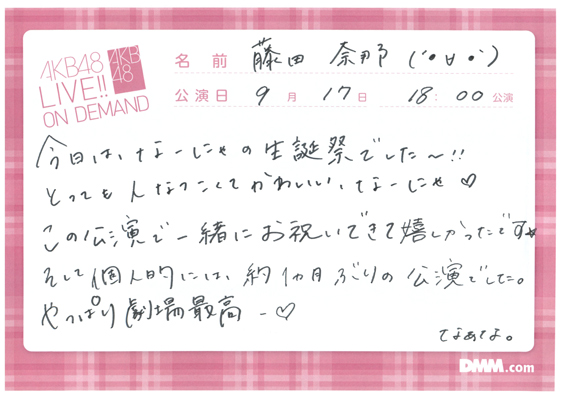 AKB48
LIVE!!
ON DEMAND
AKB
48
名前 藤田 奈那 (´•∀•`)
公演日 9月 17日 18:00公演
今日は、なーにゃの生誕祭でした〜!!
とっても人なつこくてかわいい、なーにゃ♡
この公演で一緒にお祝いできて嬉しかったです★
そして個人的には、約1カ月ぶりの公演でした。
やっぱり劇場最高ー♡
DMM.com